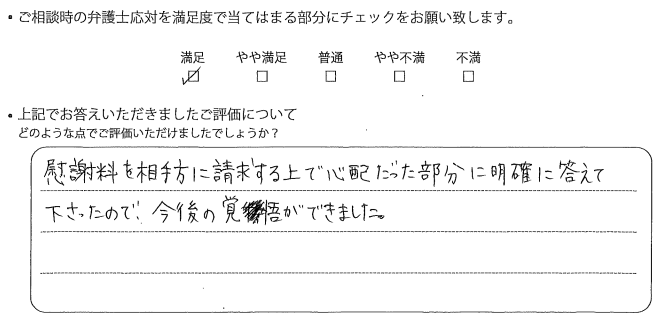 ・ご相談時の弁護士応対を満足度で当てはまる部分にチェックをお願い致します。
満足 やや満足 普通 やや不満 不満
☑ □ □ □ □
・上記でお答えいただきましたご評価について
どのような点でご評価いただけましたでしょうか？
慰謝料を相手方に請求する上で心配だった部分に明確に答えて
下さったので、今後の覚悟ができました。